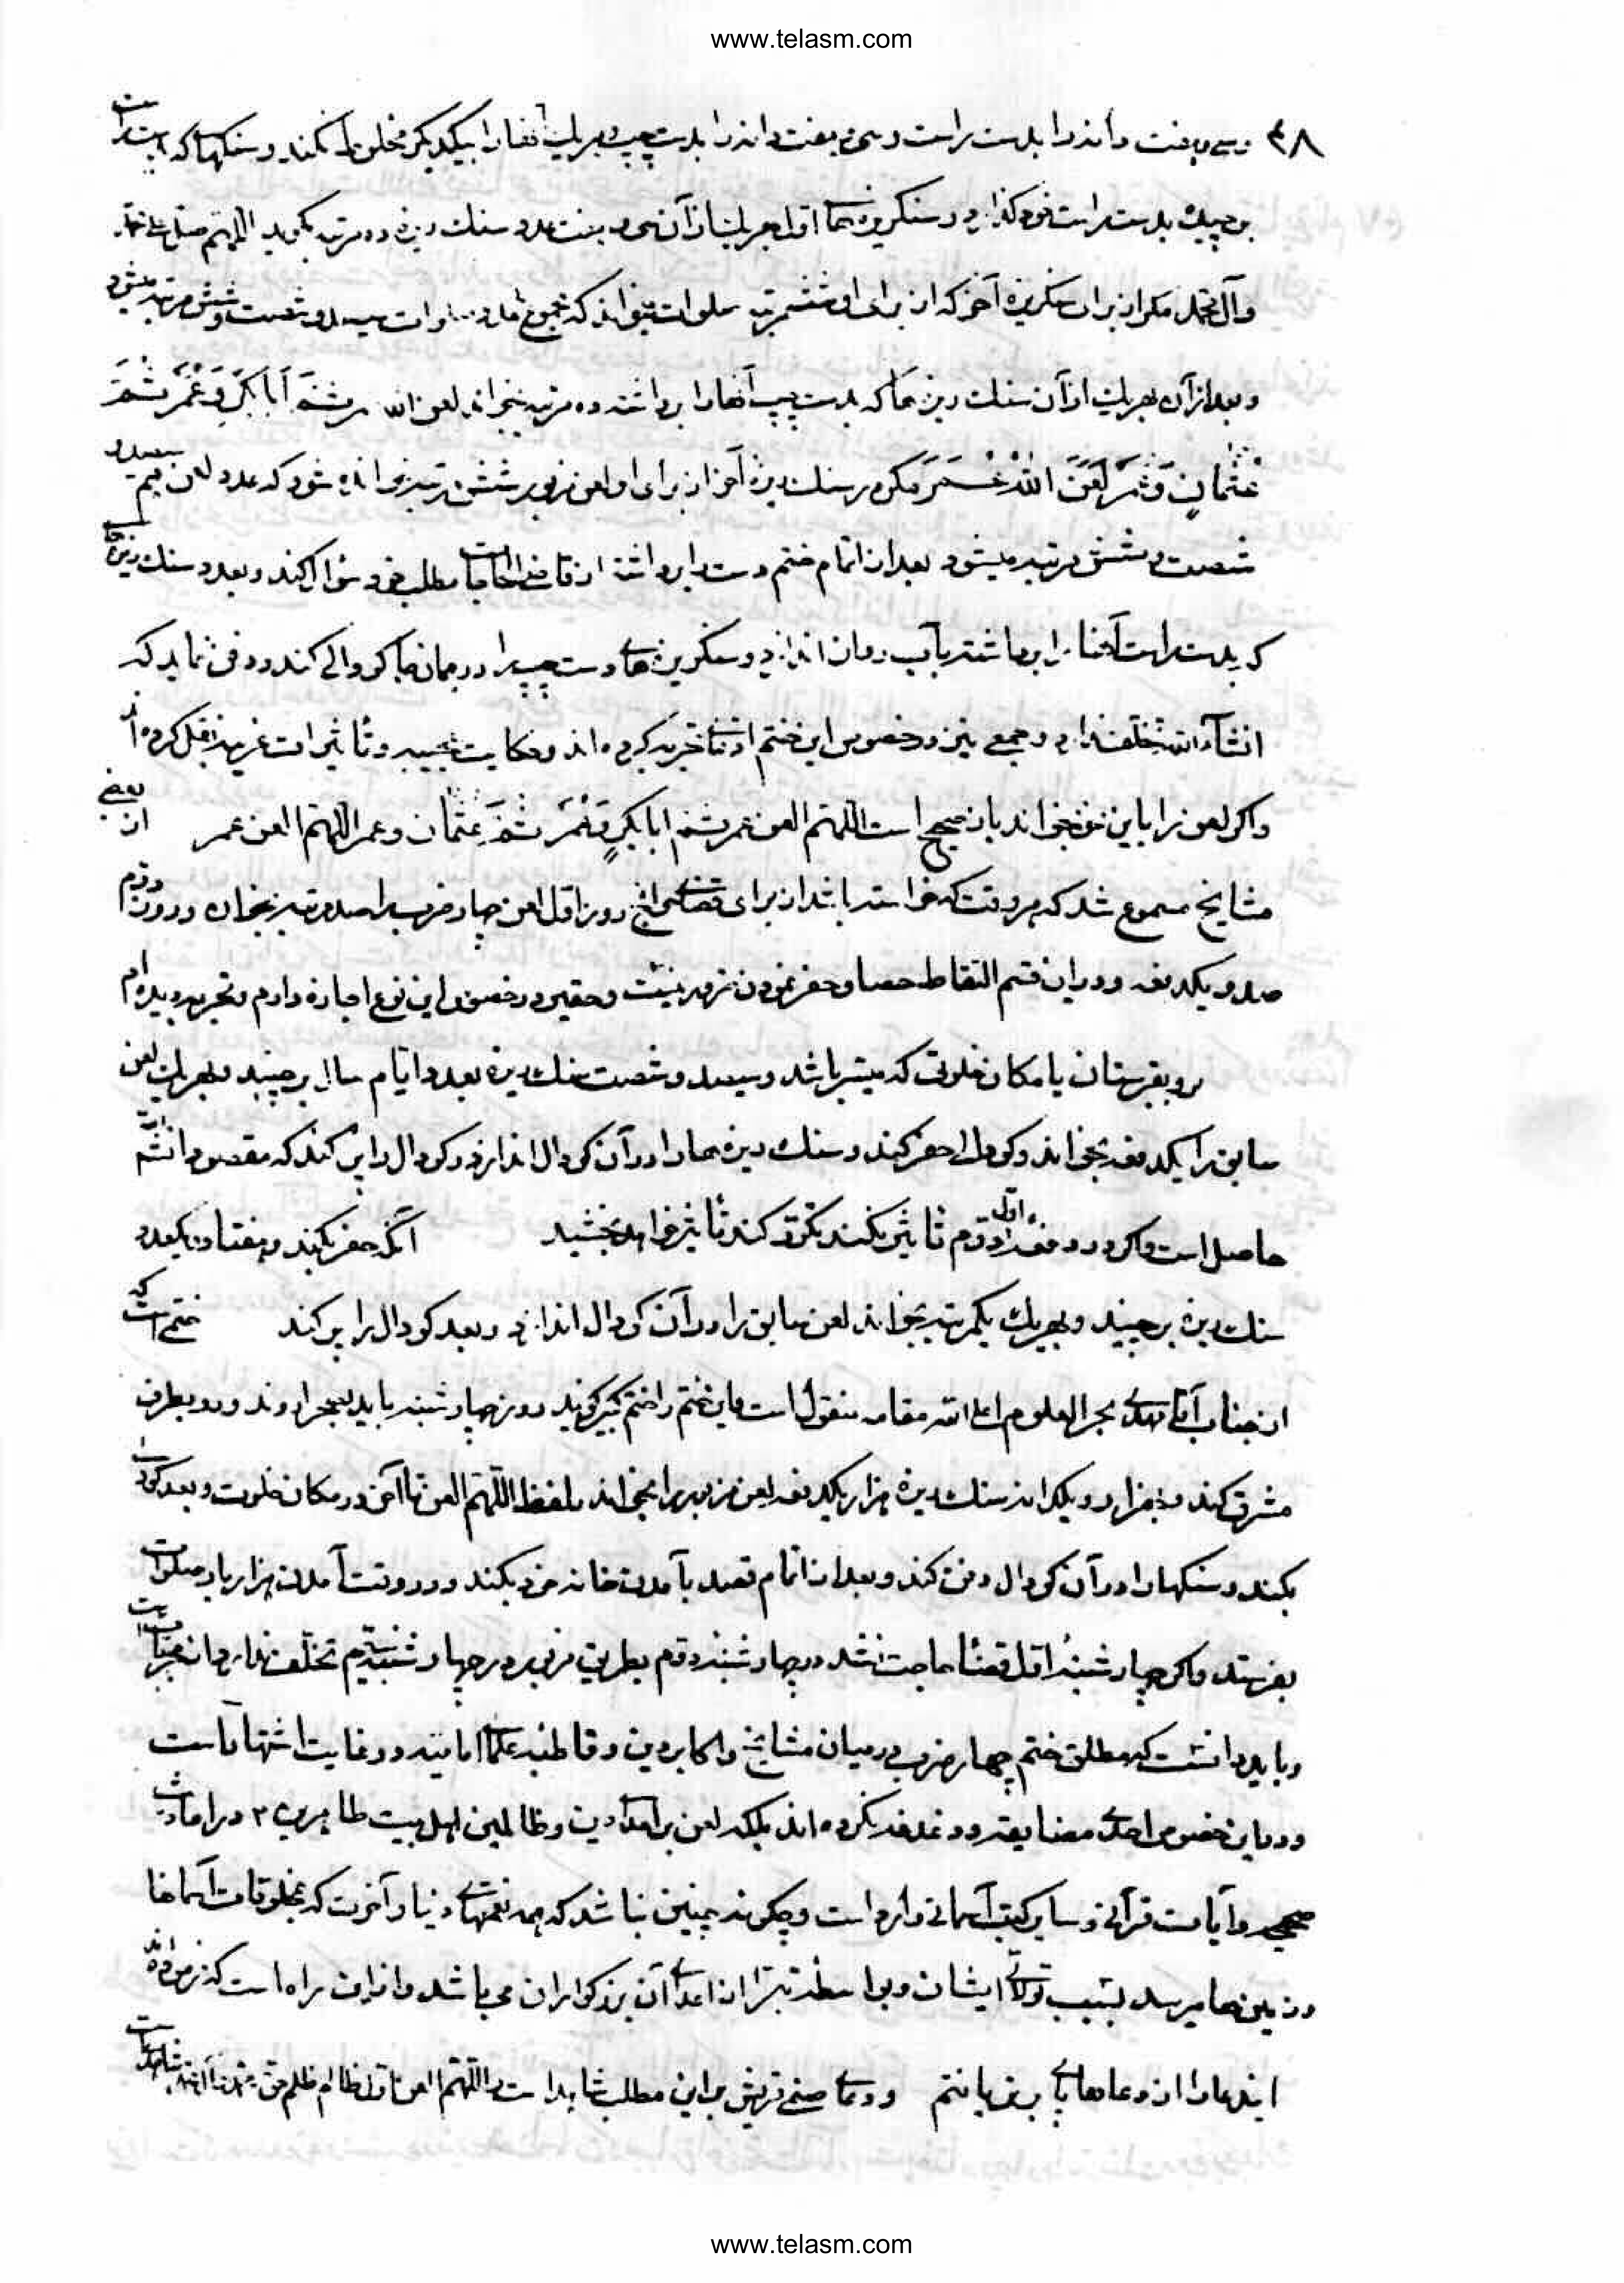 www.telasm.com
۴۸ و سی و هفت دانه را بدست راست و سی و هفت دانه را بدست چپ و هر یک آنها را بیکدیگر مخلوط نکند و سنگها که
برچیده بدست راست خود گذارد و سنگریزه ها اول هر یک از آن سی و هفت عدد سنک ریزه ده مرتبه بگوید اللهم صل علی محمد
وآل محمد مکر از برای سنگریزه آخر که از برای او شش مرتبه صلوات بخواند که مجموع صلوات سیصد و شصت و شش مرتبه میشود
و بعد از آن بهر یک از آن سنک ریزها که بدست چپ آنها را برداشته ده مرتبه بخواند لعن الله عمر ثم ابابکر و عمر ثم
عثمان و عمر ثم لعن الله عمر عمر مکر بر سنک ریزه آخر از برای او لعن مزبور شش مرتبه خوانده شود که عدد لعن هم سیصد و
شصت و شش مرتبه میشود بعد از اتمام ختم دست را برداشته از قاضی الحاجات مطلب خود سؤال کند و بعد سنک ریزه ها
که بدست راست آنها را برداشته بآب روان اندازد و سنگریزه های دست چپ را در همان جا کودالی کند و دفن نماید که
انشاء الله تخلف ندارد و جمعی نیز در خصوص این ختم ادعای تجربه کرده اند و حکایت عجیبه و تاثیرات غریبه نقل کرده اند
و اکر لعن را باین نحو بخواند باز صحیح است اللهم العن عمر ثم ابابکر و عمر ثم عثمان و عمر اللهم العن عمر از بعضی
مشایخ مسموع شد که هر وقت که خواسته باشد از برای قضای حوائج روز اول لعن چهار ضرب را صد مرتبه بخوان و روز دوم
صد و یکدفعه و در این قسم التقاط حصا و حفر نمودن زمین نیست و حقیر در خصوص این نوع اجازه دارم و تجربه دیده ام
برو بقبرستان یا مکان خلوتی که میسر باشد و سیصد و شصت سنک ریزه بعدد ایام سال برچیند و بهر یک لعن
سابق را یکدفعه بخواند و کودال حفر کند و سنک ریزه ها را در آن کودال اندازد و کودال را پر کند که مقصود انشاء الله
حاصل است و اکر در دفعه اول و دوم تاثیر نکند تکرار کند تاثیر خواهد بخشید آنکه حفر بکند و هفتاد و یکعدد
سنک ریزه برچیند و بهر یک یکمرتبه بخواند لعن سابق را و در آن کودال اندازد و بعد کودال را پر کند ختمی است که
از جناب آقا مهدی بحر العلوم اعلی الله مقامه منقول است و این ختم را ختم کبیر کویند روز چهار شنبه باید بصحرا روند و رو بطرف
مشرق کند و بهزار و یکدانه سنک ریزه هزار یکدفعه لعن مزبور را بخواند بلفظ اللهم العن تا آخر در مکان خلوت و بعد کودال
بکند و سنکها را در آن کودال دفن کند و بعد از اتمام قصد بآمدن خانه خود بکند و در وقت آمدن هزار بار صلوات
بفرستد و اکر چهار شنبه اول قضاء حاجت نشد در چهار شنبه دوم بطریق مزبور در چهار شنبه سیم تخلف ندارد و از مجربات است
و باید دانست که مطلق ختم چهار ضرب در میان مشایخ و اکابر دین و قاطبه علماء امامیه در غایت اشتهار است
و در این خصوص احدی مضایقه و دغدغه نکرده اند بلکه لعن بر اعدا دین و ظالمین اهل بیت طاهرین ۳ در احادیث
صحیحه و آیات قرآنی و سایر کتب آسمانی وارد است و چکونه چنین نباشد که همه نعمتهای دنیا و آخرت که بمخلوقات آسمانها
و زمین ها میرسد بسبب تولای ایشان و بواسطه تبرا از اعدای آن بزرکواران می باشد و از این راه است که فرموده اند
ایندعا را از دعاهای برین یافتم و دعای صنمی قریش بر این مطلب شاهد است و اللهم العن اول ظالم ظلم حق
www.telasm.com